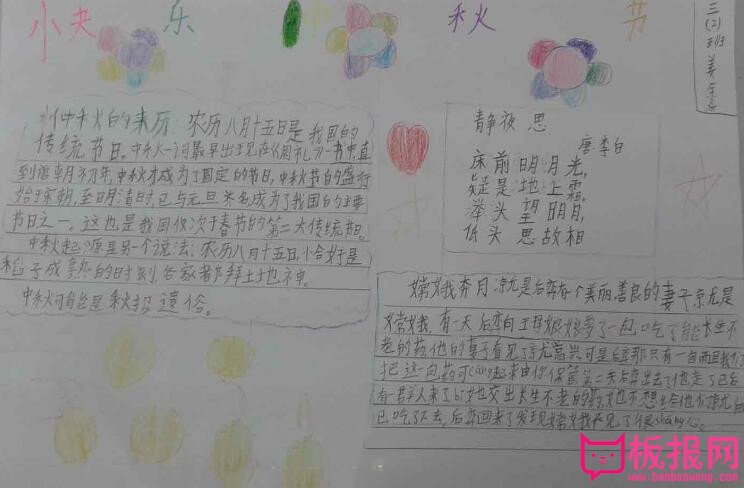 小夬 乐 中 秋 节
三(2)班 姜
中秋的来历:农历八月十五日是我国的
传统节日。中秋一词最早出现在《周礼》一书中直
到唐朝初年,中秋才成为了固定的节日,中秋节的盛行
始于宋朝,至明清时,已与元旦齐名成为了我国的主要
节日之一。这也是我国仅次于春节的第二大传统节日。
中秋起源是另一个说法:农历八月十五日,恰好是
稻子成熟的时刻,各家都拜土地神。
中秋可能是秋报遗俗。
静夜思
唐李白
床前明月光,
疑是地上霜。
举头望明月,
低头思故相
嫦娥奔月,京尤是后羿有个美丽善良的妻子京尤是
嫦娥,有一天后羿向王母娘娘要了一包,吃了能长生不
老的药,他的妻子看见了京尤高兴,可是后羿那只有一包而且我们
把这一包药可cáng起来由你保管第二天后羿出去了他走了已后
有一群人来了bī她交出长生不老的药,她不想给他们京尤自
已吃了下去,后羿回来了发现嫦娥不见了很shāng心。
板报网
www.banbaowang.com